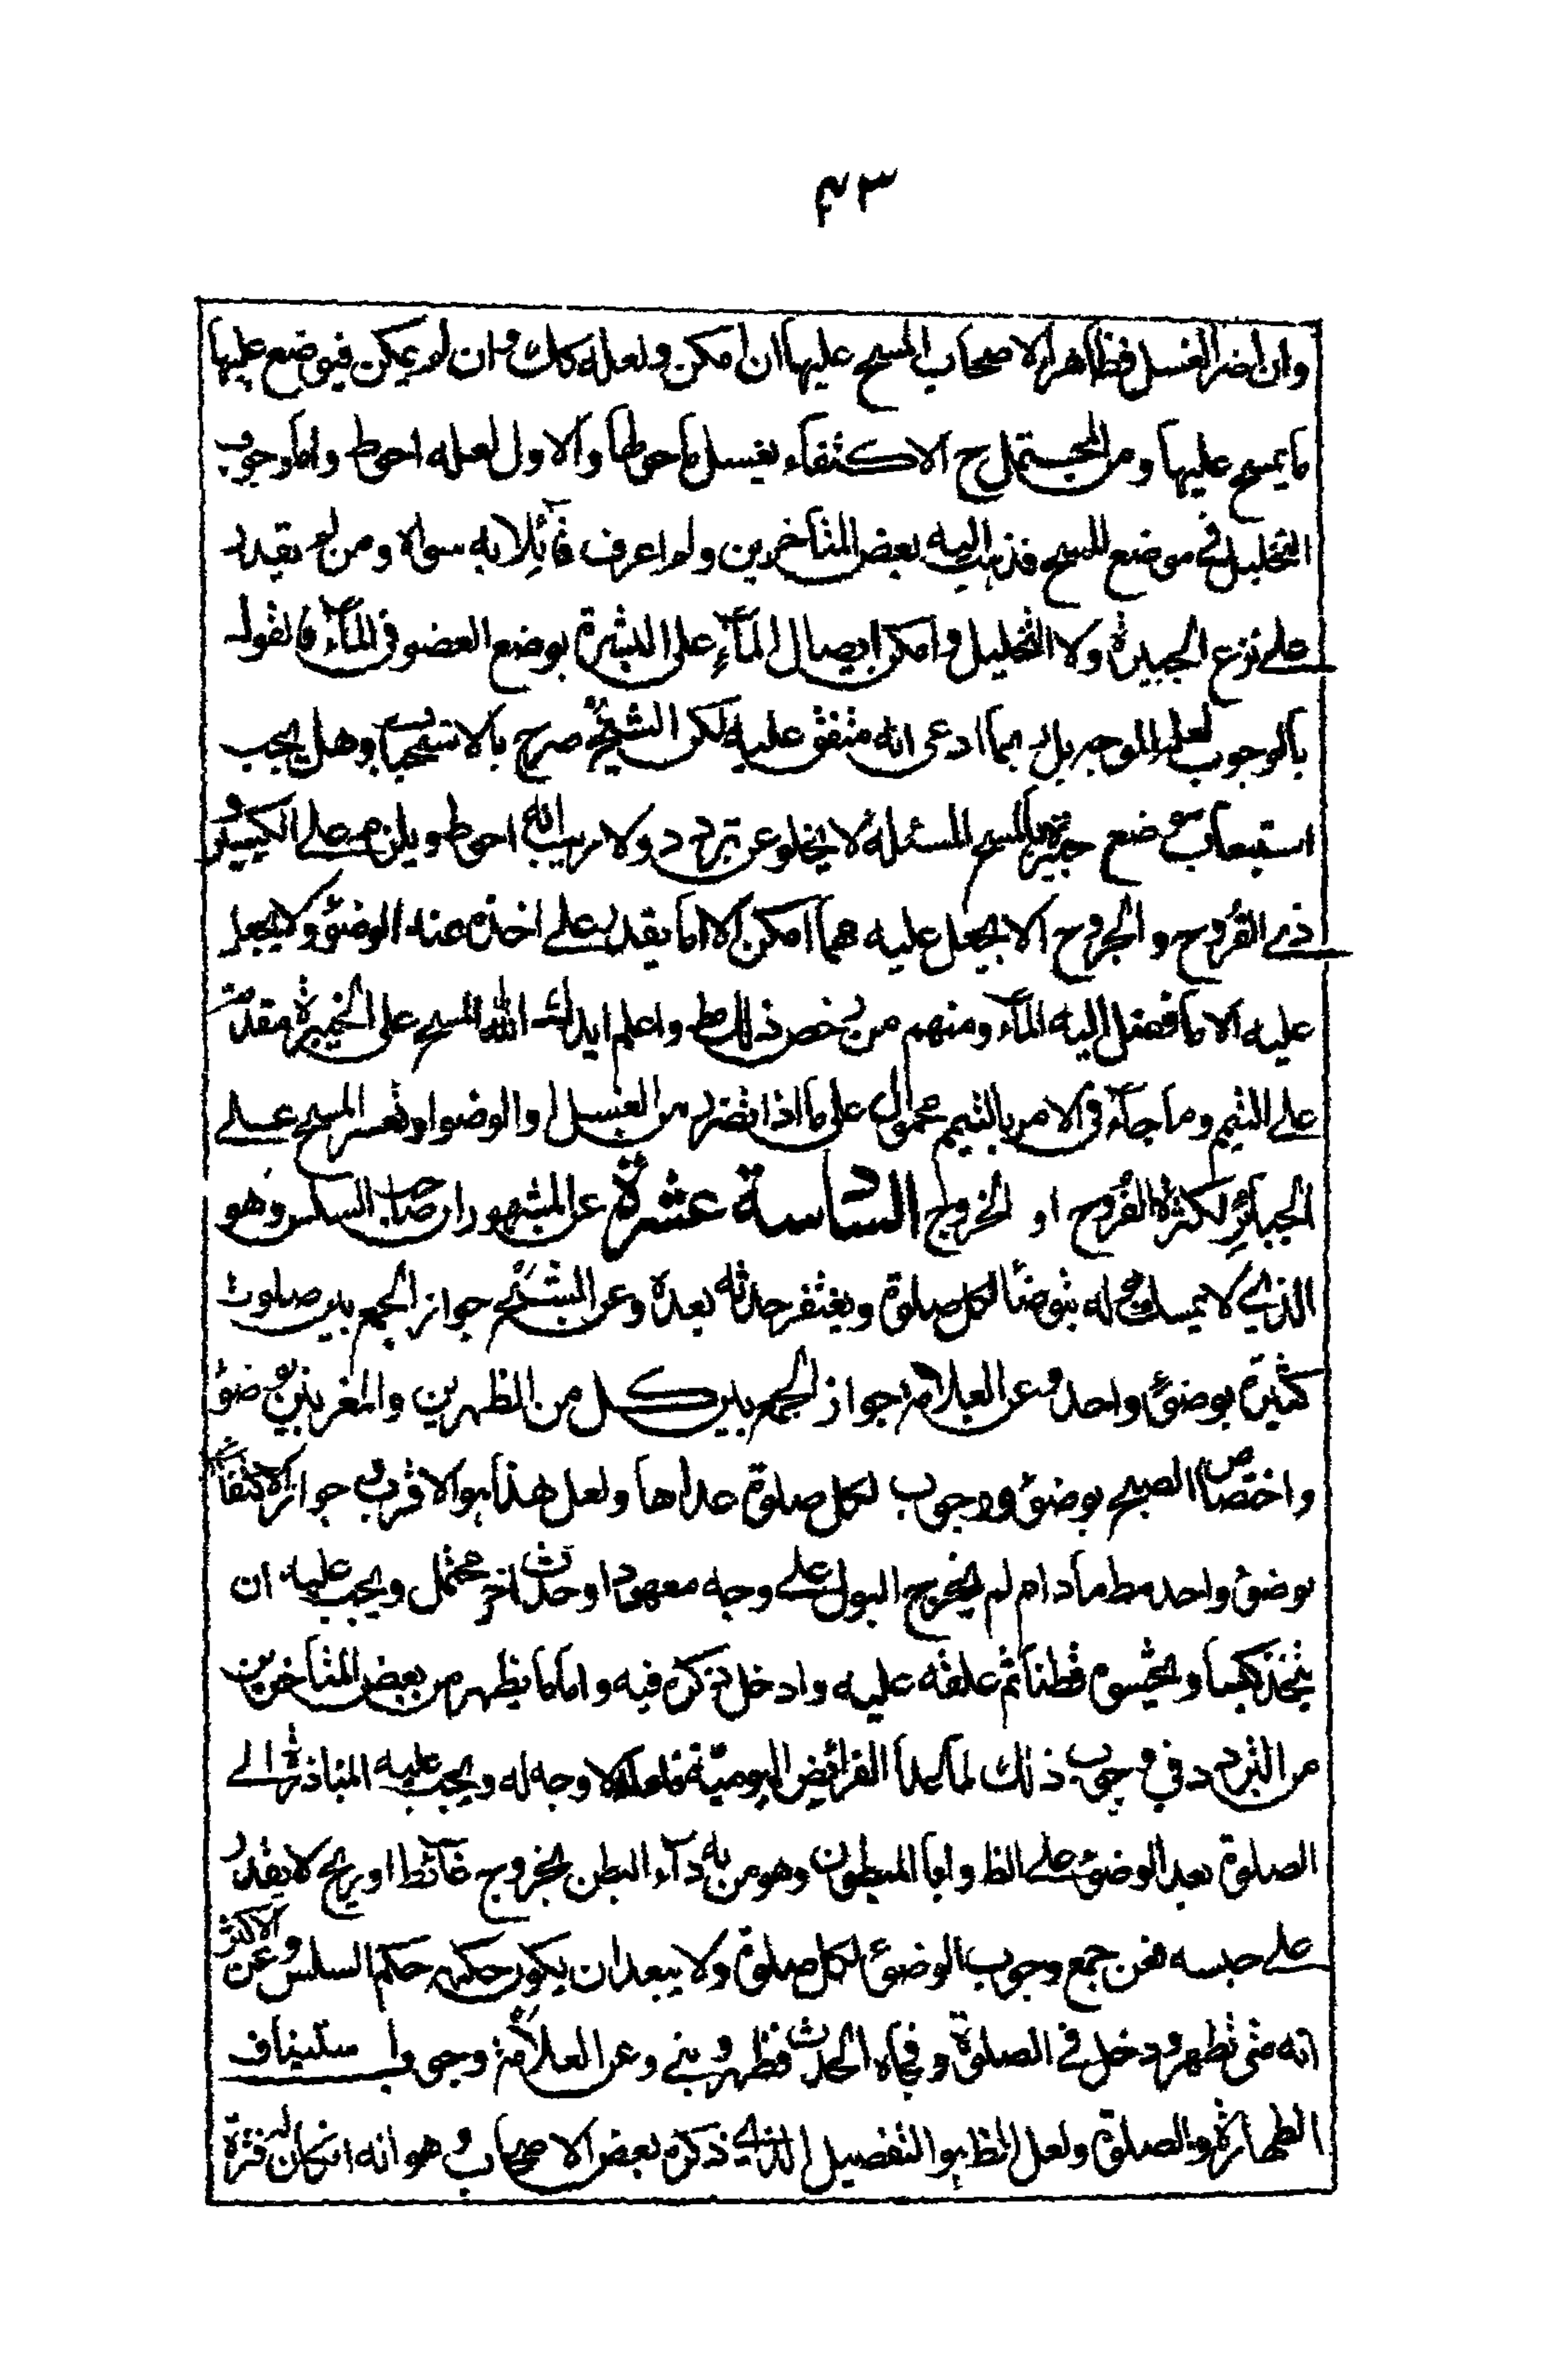 ٤٣
وان اضر الغسل فظاهر الاصحاب المسح عليها ان امكن ولعله كك وان لم يمكن فيوضع عليها
ما يمسح عليها ومن المحتمل ح الاكتفاء بغسل ما حولها والاول لعله احوط واما وجوب
التخليل في موضع المسح فذهب اليه بعض المتاخرين ولم اعرف قائلا به سواه ومن لم يقدر
على نزع الجبيرة ولا التخليل وامكن ايصال المآء على البشرة بوضع العضو في المآء فالقول
بالوجوب لعله الموجه بل ربما ادعى انه متفق عليه لكن الشيخ صرح بالاستحباب وهل يجب
استيعاب موضع جبيرة بالمسح المسئلة لا يخلو عن تردد ولا ريب انه احوط ويلزم على الكسير و
ذي القروح والجروح الا يجعل عليه مهما امكن الا ما يقدر على اخذه عند الوضوء ولا يجعل
عليه الا ما فصل اليه المآء ومنهم من رخص ذلك مط واعلم ايدك الله المسح على الجبيرة مقدمة
على التيمم وما جآء في الامر بالتيمم محمول على ما اذا تضرر من الغسل او الوضوء او تعسر المسح على
الجبائر لكثرة القروح او الخروج السادسة عشرة عن المشهور ان صاحب السلس وهو
الذي لا يمسك بوله يتوضأ لكل صلوة ويغتفر حدثه بعده وعن الشيخ جواز الجمع بين صلوت
كثيرة بوضوء واحد وعن العلامة جواز الجمع بين كل من الظهرين والمغربين بوضوء
واختصاص الصبح بوضوء ووجوب لكل صلوة عداها ولعل هذا هو الاقرب وجواز الاكتفاء
بوضوء واحد مط مادام لم يخرج البول على وجه معهود او حدث اخر محتمل ويجب عليه ان
يتخذ كيسا ويحشوه قطنا ثم علقه عليه وادخل ذكره فيه واما ما يظهر من بعض المتاخرين
من التردد في وجوب ذلك لما عدا الفرائض اليومية فلا وجه له ويجب عليه المبادرة الى
الصلوة بعد الوضوء على الظ واما المبطون وهو من به دآء البطن بخروج غائط او ريح لا يقدر
على حبسه فعن جمع وجوب الوضوء لكل صلوة ولا يبعد ان يكون حكمه حكم السلس وعن الاكثر
انه متى تطهر ودخل في الصلوة وفجاه الحدث فظهر وبنى وعن العلامة وجوب استيناف
الطهارة والصلوة ولعل الظ هو التفصيل الذي ذكره بعض الاصحاب وهو انه ان كان له فترة